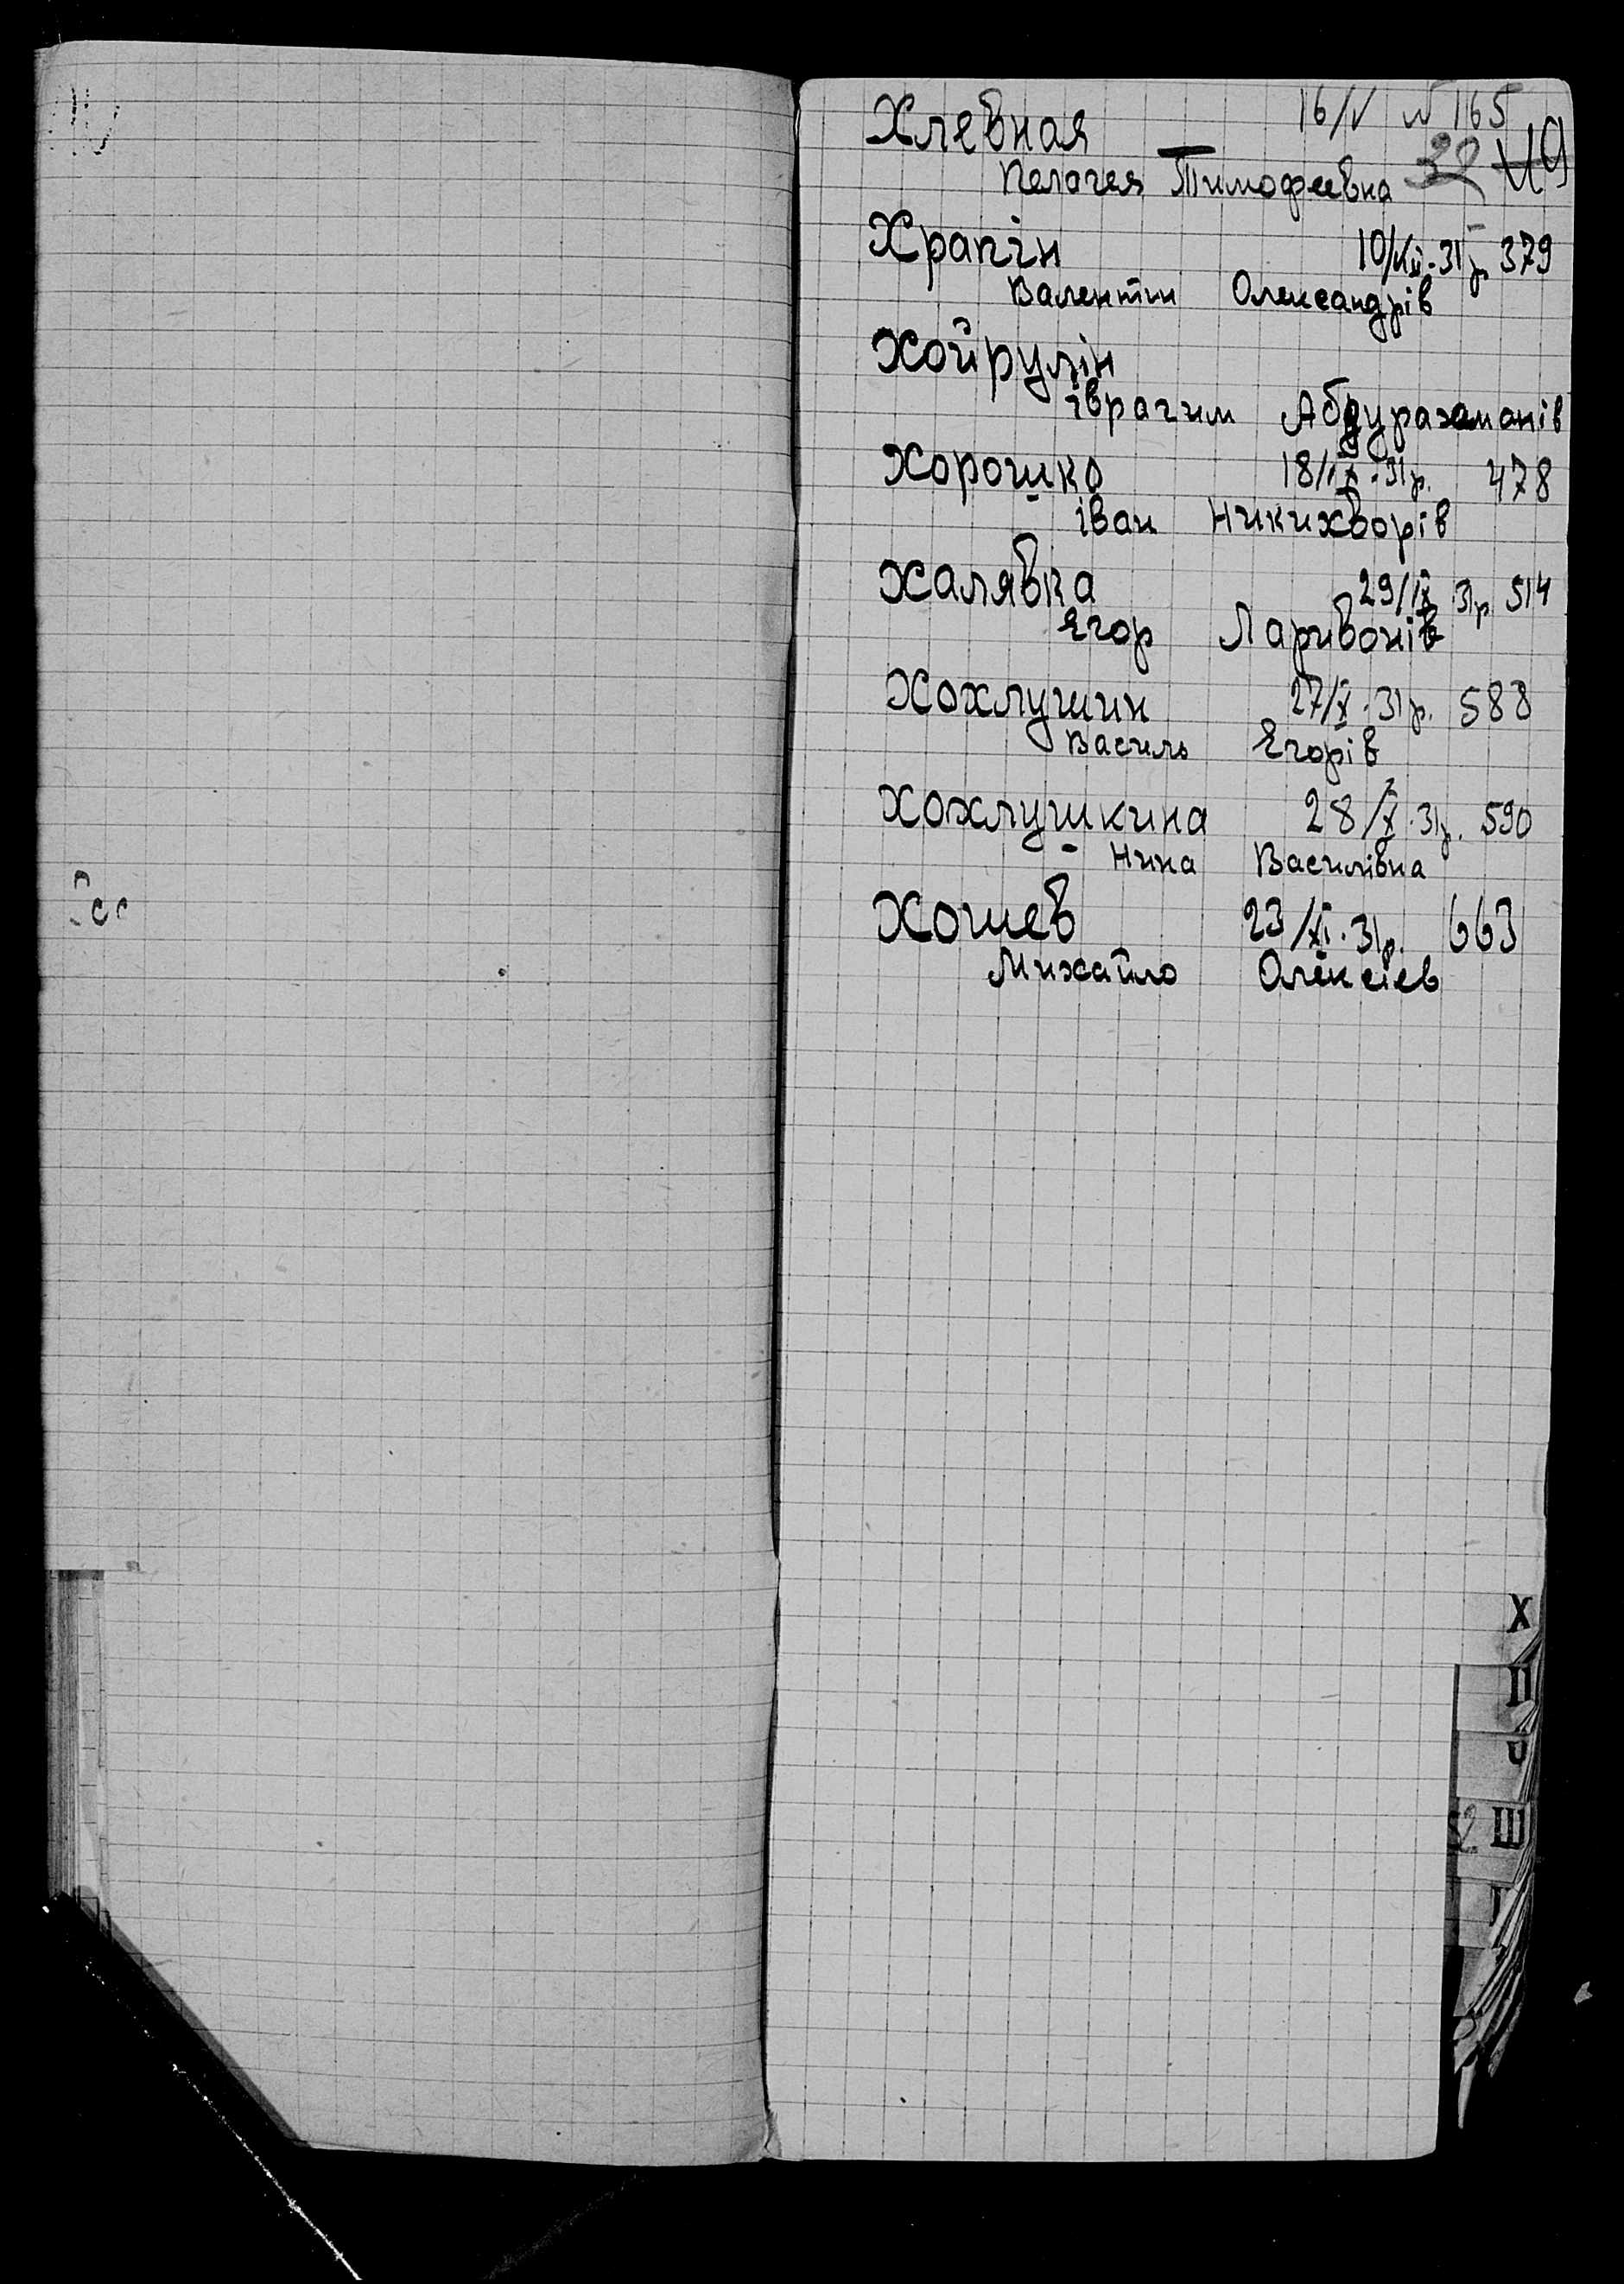 16/V № 165
Хлевная
32
Пелагея Тимофеевна
Храпін 31р. 379
Валентин Олександрів
Хойрулін
іврагим Абдурахманів
Хорошко 18/IX.31р. 478
іван Никихворів
Халявка 29/IX 31р 514
Ягор Ларивонів
Хохлушин 27/X.31р. 588
Василь Ягорів
Хохлушкина 28/X.31р. 590
Нина Василівна
Хошев 23/XI.31р. 663
Михайло Олексіев
Х
Ш